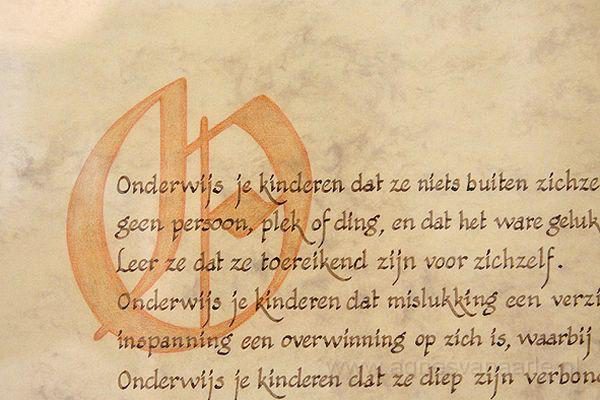 O
Onderwijs je kinderen dat ze niets buiten zichze
geen persoon, plek of ding, en dat het ware geluk
Leer ze dat ze toereikend zijn voor zichzelf.
Onderwijs je kinderen dat mislukking een verzi
inspanning een overwinning op zich is, waarbij
Onderwijs je kinderen dat ze diep zijn verbond